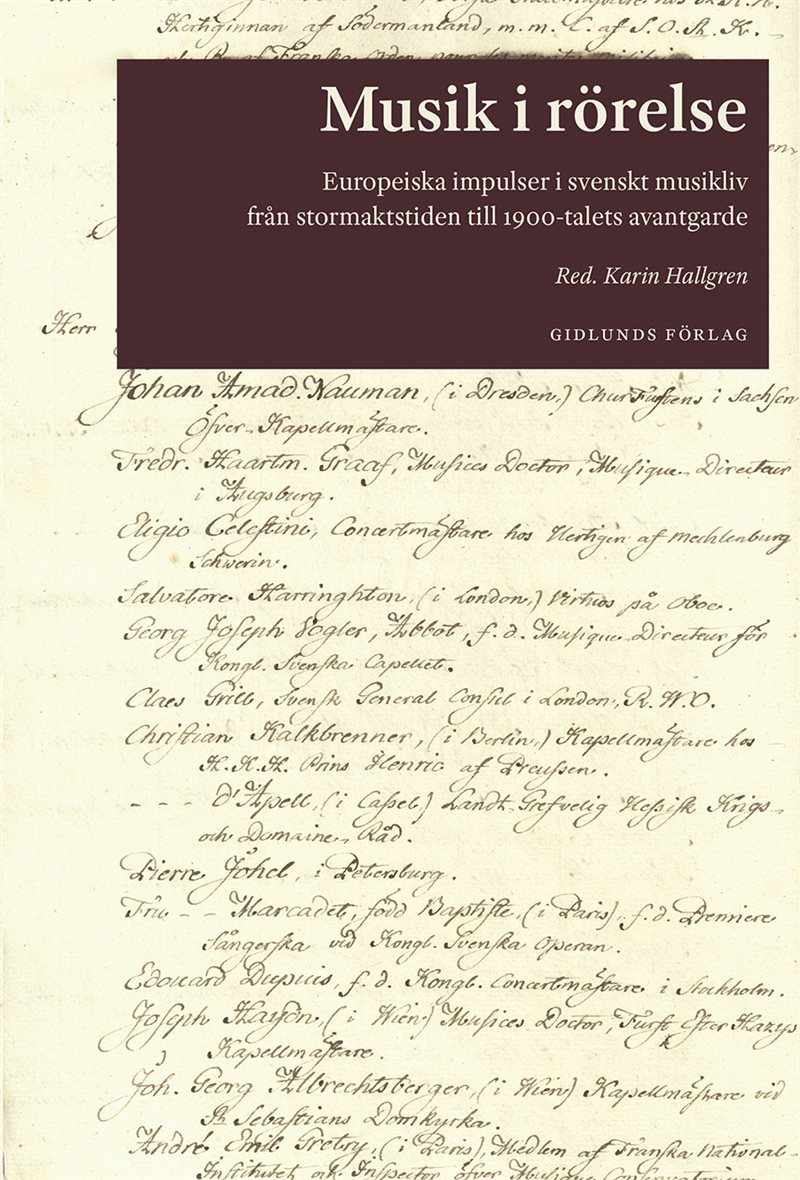 Hertiginnan af Södermanland, m. m. C. af S. O. St. K.
Musik i rörelse
Europeiska impulser i svenskt musikliv
från stormaktstiden till 1900-talets avantgarde
Red. Karin Hallgren
GIDLUNDS FÖRLAG
Herr
Johan Amad. Nauman, (i Dresden,) ChurFurstens i Sachsen
Öfver-Kapellmästare.
Fredr. Haartm. Graaf, Musices Doctor, Musique-Directeur
i Augsburg.
Eligio Celestini, Concertmästare hos Hertigen af Mechlenburg
Schwerin.
Salvatore Harringhton, (i London,) Virtuos på Oboe.
Georg Joseph Vogler, Abbot, f. d. Musique-Directeur för
Kongl. Svenska Capellet.
Claes Grill, Svensk General Consul i London, R. W. O.
Christian Kalkbrenner, (i Berlin,) Kapellmästare hos
H. K. H. Prins Henric af Preussen.
- - - d'Apell, (i Cassel) Landt-Grefvelig Hessisk Krigs-
och Domaine-Råd.
Pierre Johel, i Petersburg.
Fru - - Marcadet, född Baptiste, (i Paris), f. d. Premiere
Sångerska vid Kongl. Svenska Operan.
Edouard Dupuis, f. d. Kongl. Concertmästare i Stockholm.
Joseph Haydn, (i Wien) Musices Doctor, Furst Ester Hazys
Kapellmästare.
Joh. Georg Albrechtsberger, (i Wien) Kapellmästare vid
St. Sebastians Domkyrka.
André Emil Gretry, (i Paris), Medlem af Franska National-
Institutet och Inspector öfver Musique Conservatorium